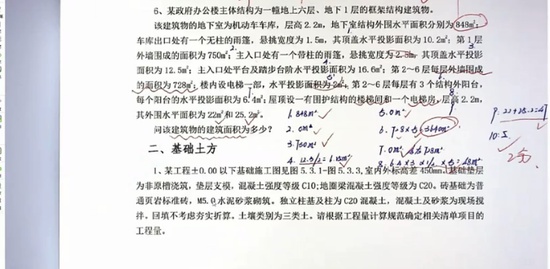 6、某政府办公楼主体结构为一幢地上六层、地下1层的框架结构建筑物。
该建筑物的地下室为机动车车库，层高2.2m，地下室结构外围水平面积分别为848m²；
车库出口处有一个无柱的雨篷，悬挑宽度为1.5m，其顶盖水平投影面积为10.2m²；第1层
外墙围成的面积为750m²；主入口处有一个带柱的雨篷，悬挑宽度为2.3m，其顶盖水平投影
面积为12.5m²；主入口处平台及踏步台阶水平投影面积为16.6m²；第2～6层每层外墙围成
的面积为728m²，楼内设电梯一部，水平投影面积为2m²；第2～6层每层有3个结构外阳台，
每个阳台的水平投影面积为6.4m²；屋顶设一有围护结构的楼梯间和一个电梯房，层高2.2m，
其外围水平面积为22m²和25.2m²。
问该建筑物的建筑面积为多少？
1. 848m²
2. 0m²
3. 750m²
4. 12.5/2=6.25m²
5. 0m²
6. 728×5=3640m²
7. 0m²
10. 5
二、基础土方
1、某工程±0.00以下基础施工图见图5.3.1-图5.3.3，室内外标高差450mm，基础垫层
为非原槽浇筑，垫层支模，混凝土强度等级C10；地圈梁混凝土强度等级为C20。砖基础为普
通页岩标准砖，M5.0水泥砂浆砌筑。独立柱基及柱为C20混凝土，混凝土及砂浆为现场搅
拌。回填不考虑夯实折算。土壤类别为三类土。请根据工程量计算规范确定相关清单项目的
工程量。